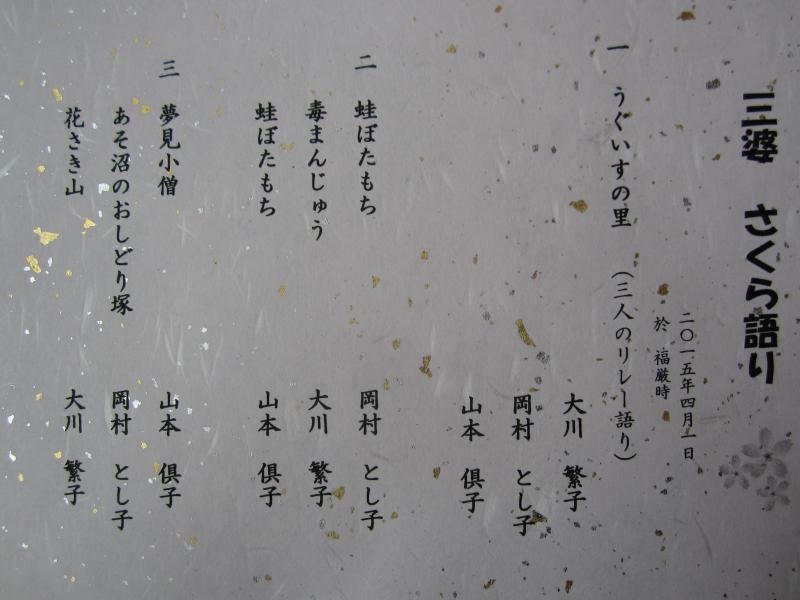 三婆 さくら語り
二〇一五年四月一日
於 福厳時
一 うぐいすの里 （三人のリレー語り）
大川 繁子
岡村 とし子
山本 倶子
二 蛙ぼたもち 岡村 とし子
毒まんじゅう 大川 繁子
蛙ぼたもち 山本 倶子
三 夢見小僧 山本 倶子
あそ沼のおしどり塚 岡村 とし子
花さき山 大川 繁子